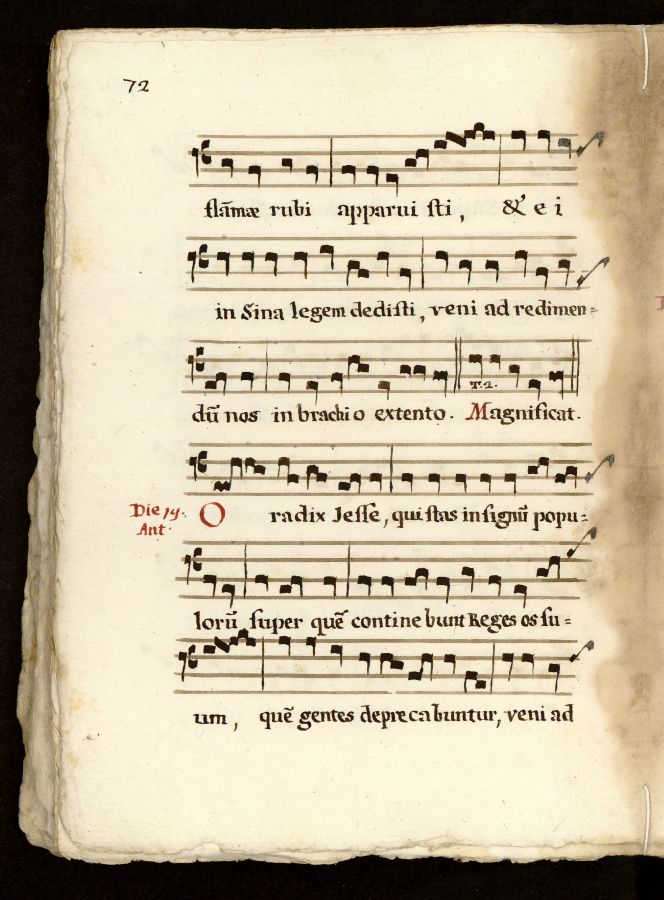 72
flāmæ rubi apparui sti, & e i
in Sina legem dedisti, veni ad redimen=
T. 2.
dū nos in brachi o extento. Magnificat.
Die 19.
Ant.
O radix Jesse, qui stas in signū popu=
lorū super quē contine bunt Reges os su=
um, quē gentes depreca buntur, veni ad